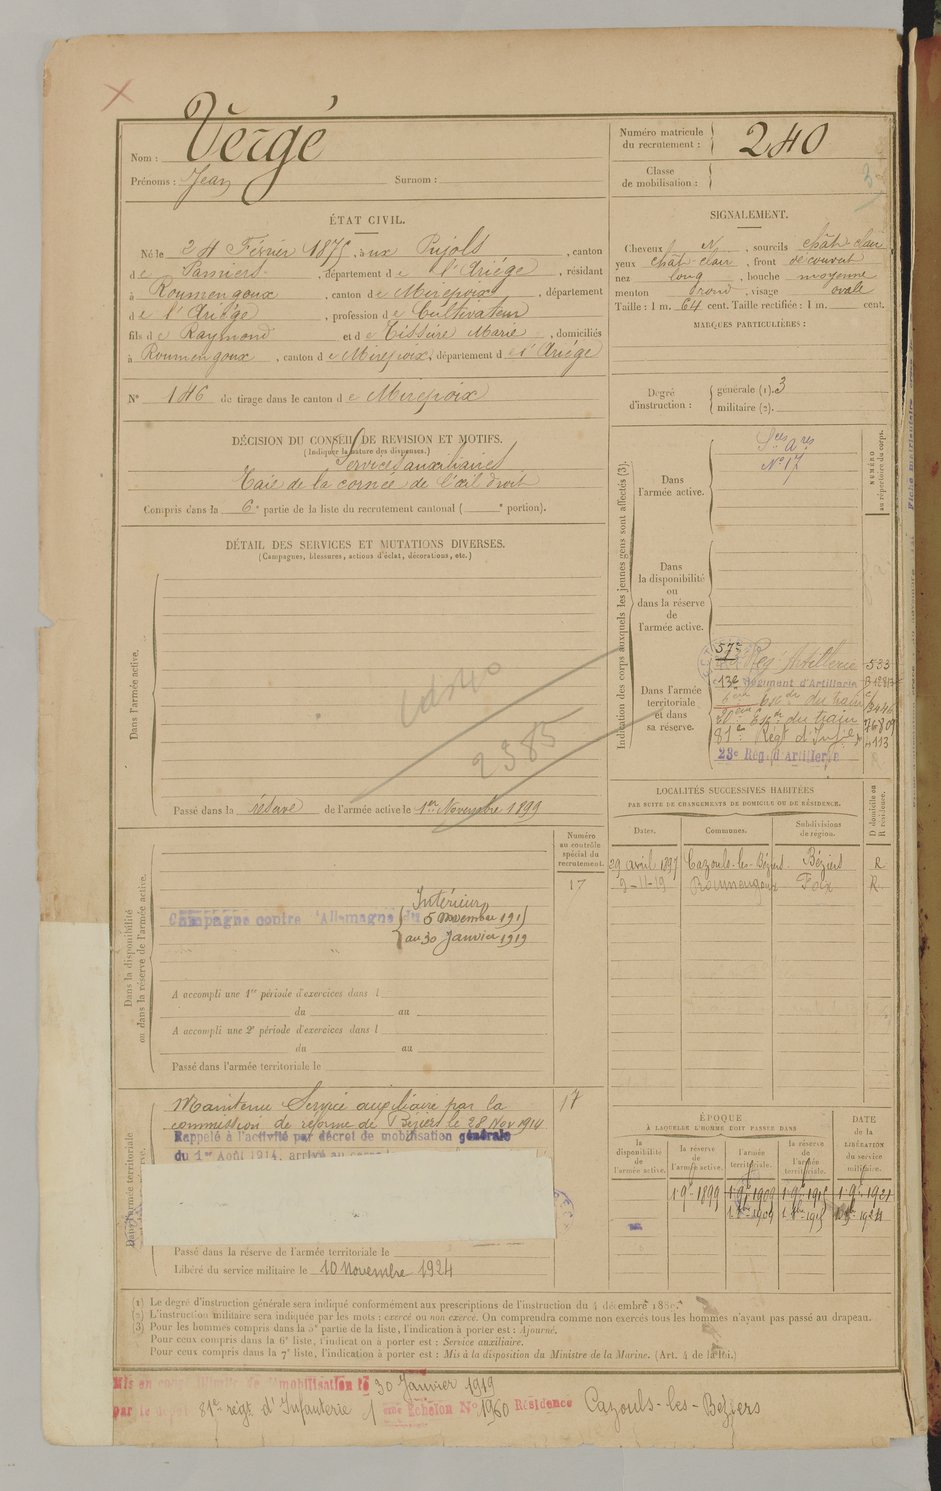 Vergé
Nom :
Prénoms : Jean Surnom :
Numéro matricule
du recrutement : 240
Classe
de mobilisation :
ÉTAT CIVIL.
Né le 24 Février 1875, à ux Pujols, canton
de Pamiers, département de l'Ariége, résidant
à Roumengoux, canton de Mirepoix, département
de l'Ariége, profession de Cultivateur
fils de Raymond et de Tisseire Marie, domiciliés
à Roumengoux, canton de Mirepoix, département de l'Ariége
N° 146 de tirage dans le canton de Mirepoix
DÉCISION DU CONSEIL DE REVISION ET MOTIFS.
(Indiquer la nature des dispenses.)
Services auxiliaires
Taie de la cornée de l'œil droit
Compris dans la 6e partie de la liste du recrutement cantonal ( e portion).
DÉTAIL DES SERVICES ET MUTATIONS DIVERSES.
(Campagnes, blessures, actions d'éclat, décorations, etc.)
Dans l'armée active.
2385
Passé dans la réserve de l'armée active le 1er Novembre 1899
Numéro
au contrôle
spécial du
recrutement.
17
Dans la disponibilité
ou dans la réserve de l'armée active.
Intérieur
Campagne contre l'Allemagne du 5 novembre 1915
au 30 Janvier 1919
A accompli une 1re période d'exercices dans l
du au
A accompli une 2e période d'exercices dans l
du au
Passé dans l'armée territoriale le
Dans l'armée territoriale
Maintenu Service auxiliaire par la
commission de réforme de Béziers le 28 Nov 1914
17
Rappelé à l'activité par décret de mobilisation générale
du 1er Août 1914, arrivé au corps
Passé dans la réserve de l'armée territoriale le
Libéré du service militaire le 10 Novembre 1924
SIGNALEMENT.
Cheveux N, sourcils chât-clair
yeux chât-clair, front découvert
nez long, bouche moyenne
menton rond, visage ovale
Taille : 1 m. 64 cent. Taille rectifiée : 1 m. cent.
MARQUES PARTICULIÈRES :
Degré
d'instruction :
générale (1). 3
militaire (2).
Indication des corps auxquels les jeunes gens sont affectés (3).
NUMÉRO
au répertoire du corps.
Dans
l'armée active.
Sces Ares
N° 17
Dans
la disponibilité
ou
dans la réserve
de
l'armée active.
Dans l'armée
territoriale
et dans
sa réserve.
57e
Artillerie 533
13e Régiment d'Artillerie
6eme Eon du train
20eme Eon du train 76809
81e Régt d'Infie 4113
28e Rég. d'Artillerie
LOCALITÉS SUCCESSIVES HABITÉES
PAR SUITE DE CHANGEMENTS DE DOMICILE OU DE RÉSIDENCE.
D domicile ou
R résidence.
Dates. Communes. Subdivisions
de région.
29 avril 1897 Cazouls-les-Béziers Béziers R
9-11-19 Roumengoux Foix R.
ÉPOQUE
À LAQUELLE L'HOMME DOIT PASSER DANS
DATE
de la
LIBÉRATION
du service
militaire.
la
disponibilité
de
l'armée active.
la réserve
de
l'armée active.
l'armée
territoriale.
la réserve
de
l'armée
territoriale.
1 9e 1899 1 9e 1909 1 9e 1915 1 9e 1921
(1) Le degré d'instruction générale sera indiqué conformément aux prescriptions de l'instruction du 4 décembre 1889.
(2) L'instruction militaire sera indiquée par les mots : exercé ou non exercé. On comprendra comme non exercés tous les hommes n'ayant pas passé au drapeau.
(3) Pour les hommes compris dans la 5e partie de la liste, l'indication à porter est : Ajourné.
Pour ceux compris dans la 6e liste, l'indication à porter est : Service auxiliaire.
Pour ceux compris dans la 7e liste, l'indication à porter est : Mis à la disposition du Ministre de la Marine. (Art. 4 de la loi.)
Mis en congé illimité de démobilisation le 30 Janvier 1919
par le dépôt 81e régt d'Infanterie Echelon N° 1960 Résidence Cazouls-les-Béziers